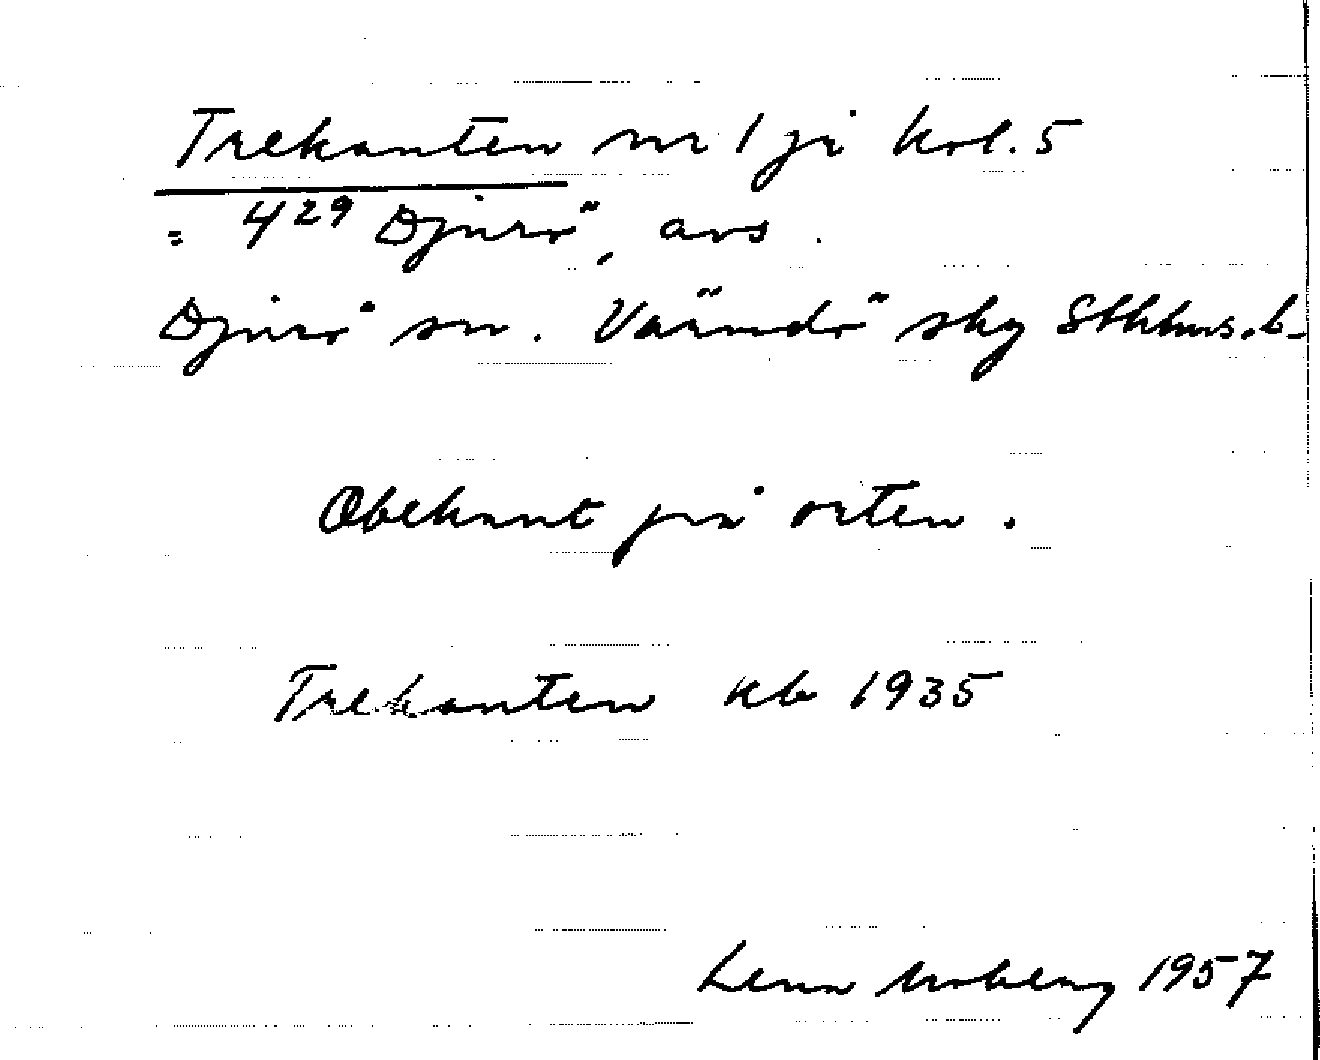 Trekanten nr 1 ji kol. 5
= 4 29 Djurö, avs.
Djurö sn. Värmdö skg Sthlms.l.
Obekant på orten.
Trekanten kb 1935
Lena Moberg 1957